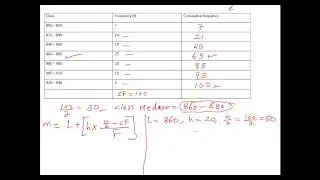 Class Frequency (f) Cumulative frequency
800 – 820 7 7
820 – 840 14 21
840 – 860 19 40
860 – 880 25 65
20 85
10 95
5 100
ΣF = 100
100/2 = 50 class Median = 860 – 880
m = L + [h × (n/2 – cF)/F]
L = 860, h = 20, n/2 = 100/2 = 50